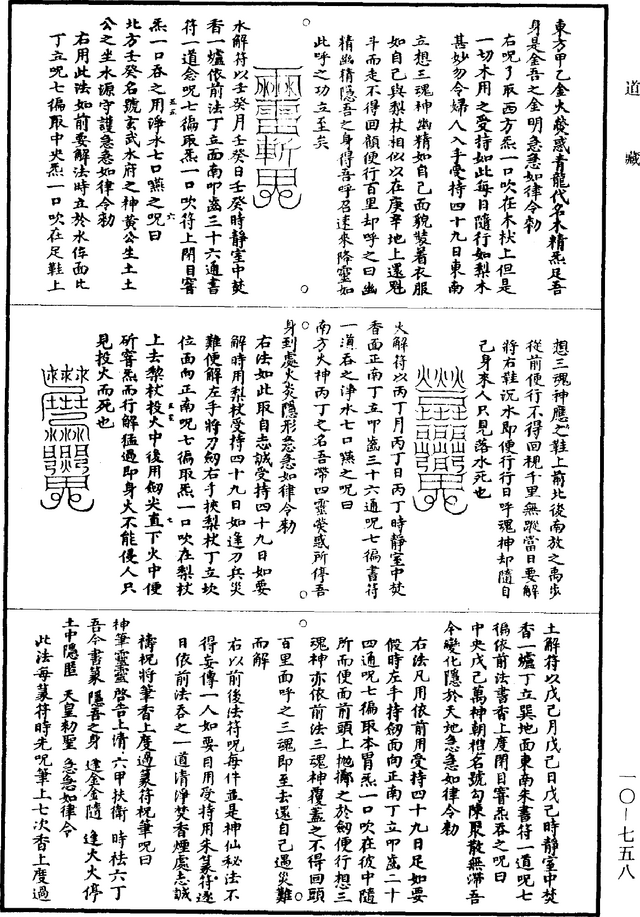 道藏
東方甲乙金火熒惑青龍代名木精炁足吾
身是金吾之金明急急如律令勑
右呪了取西方炁一口吹在木杖上但是
一切木用之受持如此每日隨行如梨木
甚妙勿令婦人入手受持四十九日東南
立想三魂神幽精如自己面貌裝着衣服
如自己與梨杖相似以在庚辛地上還魁
斗而走不得回顧便行百里却呼之曰幽
精幽精隱吾之身得吾呼召速來降靈如
此呼之功立至矣
水解符以壬癸月壬癸日壬癸時靜室中焚
香一爐依前法丁立面南叩齒三十六通書
符一道念呪七徧取炁一口吹符上閉目窨
炁一口吞之用淨水七口嚥之呪曰
北方壬癸名號玄武水府之神黃公生土土
公之坐水源守護急急如律令勑
右用此法如前要解法時立於水伍面北
丁立呪七徧取中央炁一口吹在足鞋上
想三魂神應之鞋上前北後南放之禹步
從前便行不得回視千里無蹤當日要解
將右鞋沉水即便行行日呼魂神却隨自
己身來人只見落水死也
火解符以丙丁月丙丁日丙丁時靜室中焚
香面正南丁立叩齒三十六通呪七徧書符
一道吞之淨水七口嚥之呪曰
南方火神丙丁之名吾帶四靈熒惑所停吾
身到處火炎隱形急急如律令勑
右法如此取自志誠受持四十九日如要
解時用梨杖受持四十九日如逢刀兵災
難便解左手將刀劒右手挾梨杖丁立坎
位面向正南呪七徧取炁一口吹在梨杖
上去梨杖投火中後用劒尖直下火中便
斫窨炁而行解猛過即身火不能侵人只
見投火而死也
土解符以戊己月戊己日戊己時靜室中焚
香一爐丁立巽地面東南朱書符一道呪七
徧依前法書香上度閉目窨炁吞之呪曰
中央戊己萬神朝樻名號勾陳聚散無滯吾
今變化隱於天地急急如律令勑
右法凡用依前用受持四十九日足如要
假時左手持劒面向正南丁立叩齒二十
四通呪七徧取本胃炁一口吹在彼中隨
所而便面前頭上拋擲之於劒便行想三
魂神亦依前法三魂神覆蓋之不得回頭
百里面呼之三魂即至去還自己過災難
而解
右以前後法符呪每件並是神仙秘法不
得妄傳一人如要目用受持用朱篆符逐
日依前法吞之一道清淨焚香煙處志誠
禱祝將筆香上度過篆符祝筆呪曰
神筆靈靈啓告上清 六甲扶衛 時祛六丁
吾今書篆 隱吾之身 逢金金隨 逢火火停
土中隱匿 天皇勑聖 急急如律令
此法每篆符時先呪筆上七次香上度過
一〇—七五八